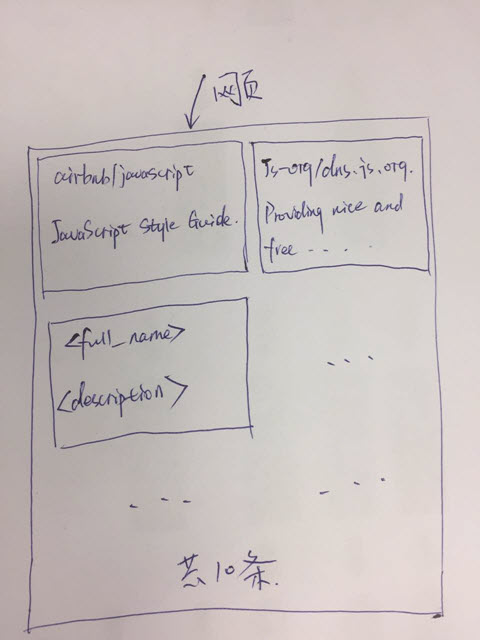 网页
airbnb/javascript
JavaScript Style Guide.
Js-org/dns.js.org.
Providing nice and
free .....
<full_name>
...
<description>
...
...
共10条.